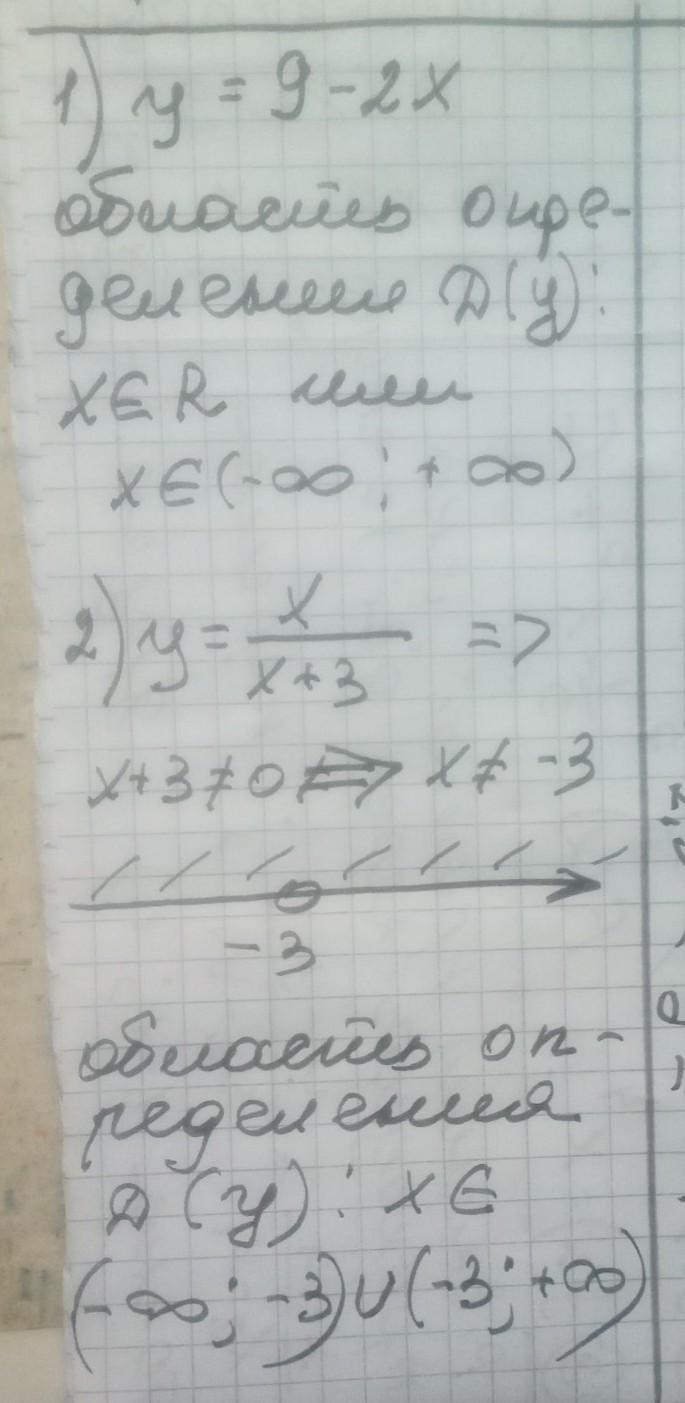 1) y = 9 - 2x
область опре-
деления D(y):
x∈R или
x∈(-∞; +∞)
2) y = x/(x+3) =>
x+3≠0 => x≠ -3
-3
область оп-
ределения
D(y): x∈
(-∞; -3)∪(-3; +∞)